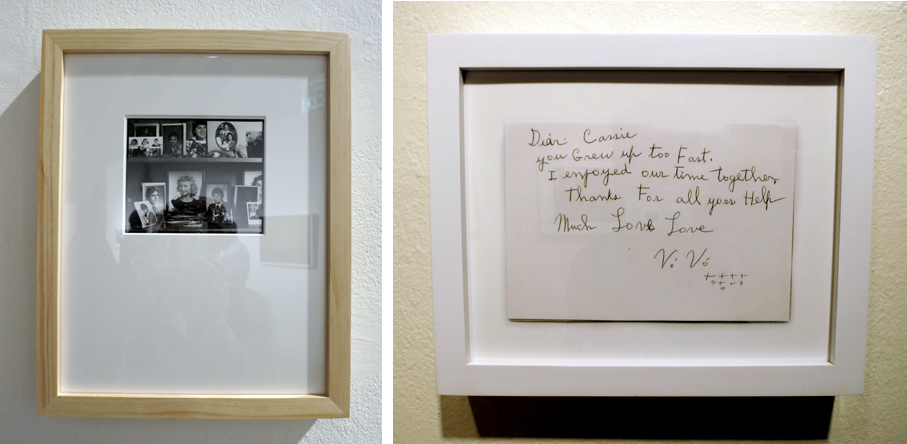 Dear Cassie
you Grew up too Fast.
I enjoyed our time together,
Thanks For all your Help
Much Love Love
Vó Vó
++++